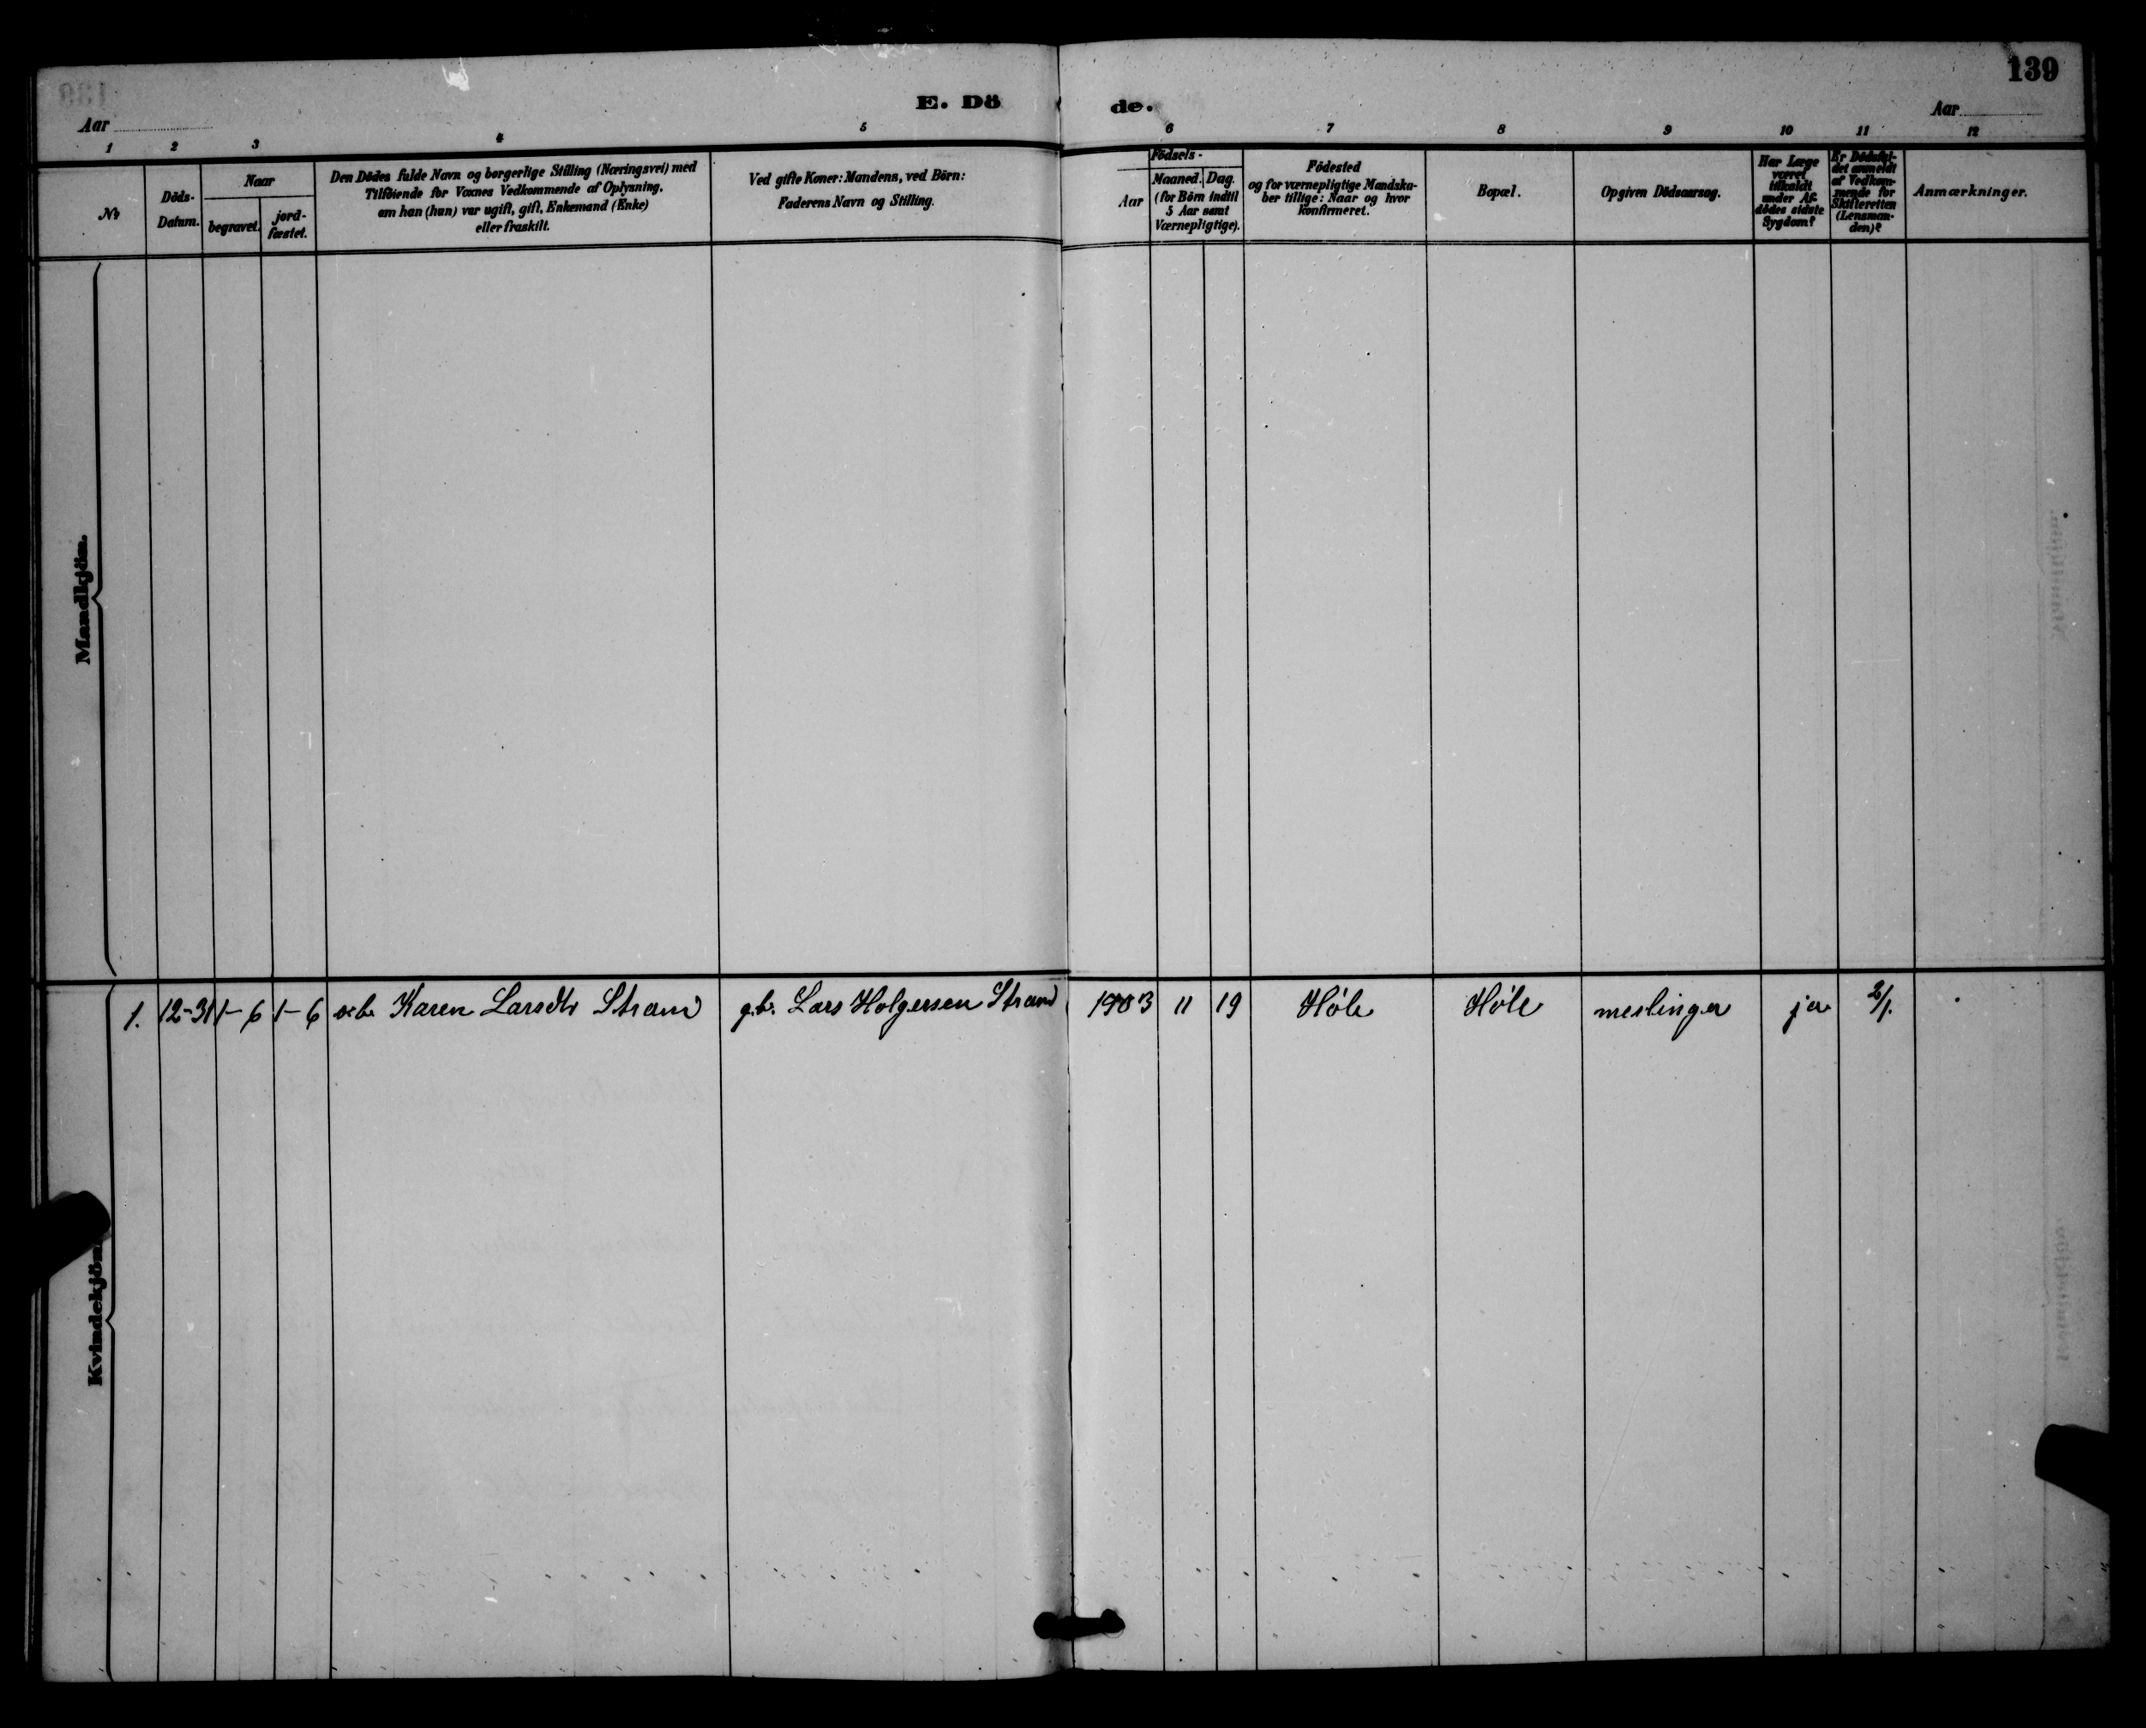 139
E. Dö de.
Aar Aar
1 2 3 4 5 6 7 8 9 10 11 12
№
Döds-
Datum.
Naar
begravet.
jord-
fæstet.
Den Dödes fulde Navn og borgerlige Stilling (Næringsvei) med
Tilföiende for Voxnes Vedkommende af Oplysning,
om han (hun) var ugift, gift, Enkemand (Enke)
eller fraskilt.
Ved gifte Koner: Mandens, ved Börn:
Faderens Navn og Stilling.
Födsels-
Aar
Maaned. Dag.
(for Börn indtil
5 Aar samt
Værnepligtige).
Födested
og for værnepligtige Mandska-
ber tillige: Naar og hvor
konfirmeret.
Bopæl.
Opgiven Dödsaarsag.
Har Læge
været
tilkaldt
under Af-
dödes sidste
Sygdom?
Er Dödsfal-
det anmeldt
af Vedkom-
mende for
Skifteretten
(Lensman-
den)?
Anmærkninger.
Mandkjön.
1. 12-31 1-6 1-6 Karen Larsdtr Strand g.b. Lars Holgersen Strand 1903 11 19 Høle Høle meslinger ja 2/1.
Kvindekjön.